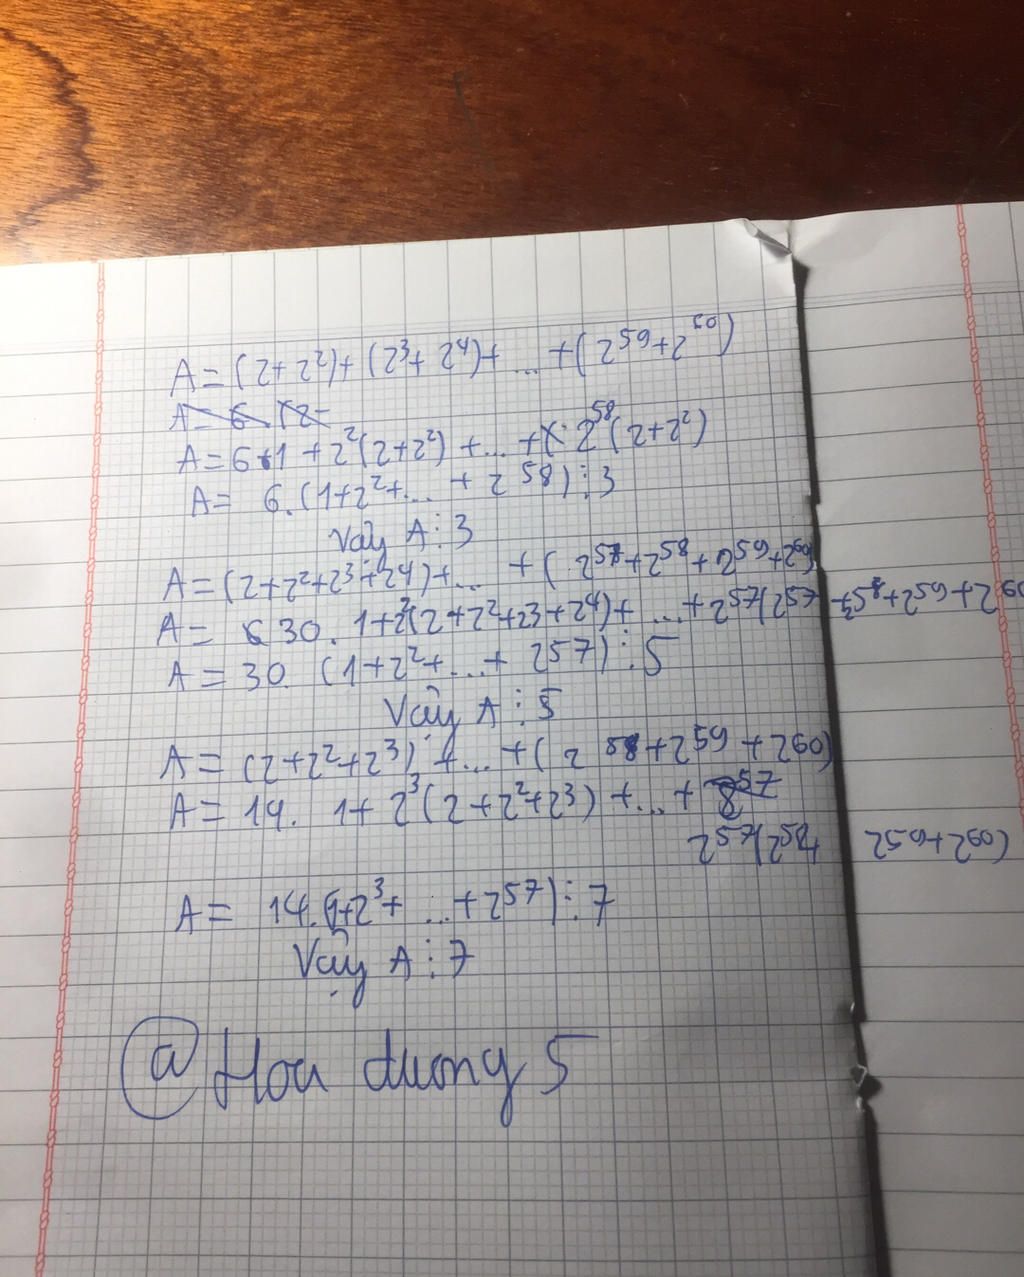 A = (2 + 2²) + (2³ + 2⁴) + ... + (2⁵⁹ + 2⁶⁰)
A = 6 . (2 -
A = 6 . 1 + 2²(2 + 2²) + ... + 2⁵⁸(2 + 2²)
A = 6 . (1 + 2² + ... + 2⁵⁸) ⋮ 3
Vậy A ⋮ 3
A = (2 + 2² + 2³ + 2⁴) + ... + (2⁵⁷ + 2⁵⁸ + 2⁵⁹ + 2⁶⁰)
A = 30 . 1 + 2²(2 + 2² + 2³ + 2⁴) + ... + 2⁵⁷(2⁵⁷ + 2⁵⁸ + 2⁵⁹ + 2⁶⁰)
A = 30 . (1 + 2² + ... + 2⁵⁷) ⋮ 5
Vậy A ⋮ 5
A = (2 + 2² + 2³) + ... + (2⁵⁸ + 2⁵⁹ + 2⁶⁰)
A = 14 . 1 + 2³(2 + 2² + 2³) + ... + 8⁵⁷
2⁵⁷(2⁵⁸ + 2⁵⁹ + 2⁶⁰)
A = 14 . (1 + 2³ + ... + 2⁵⁷) ⋮ 7
Vậy A ⋮ 7
@ Hoa dương 5